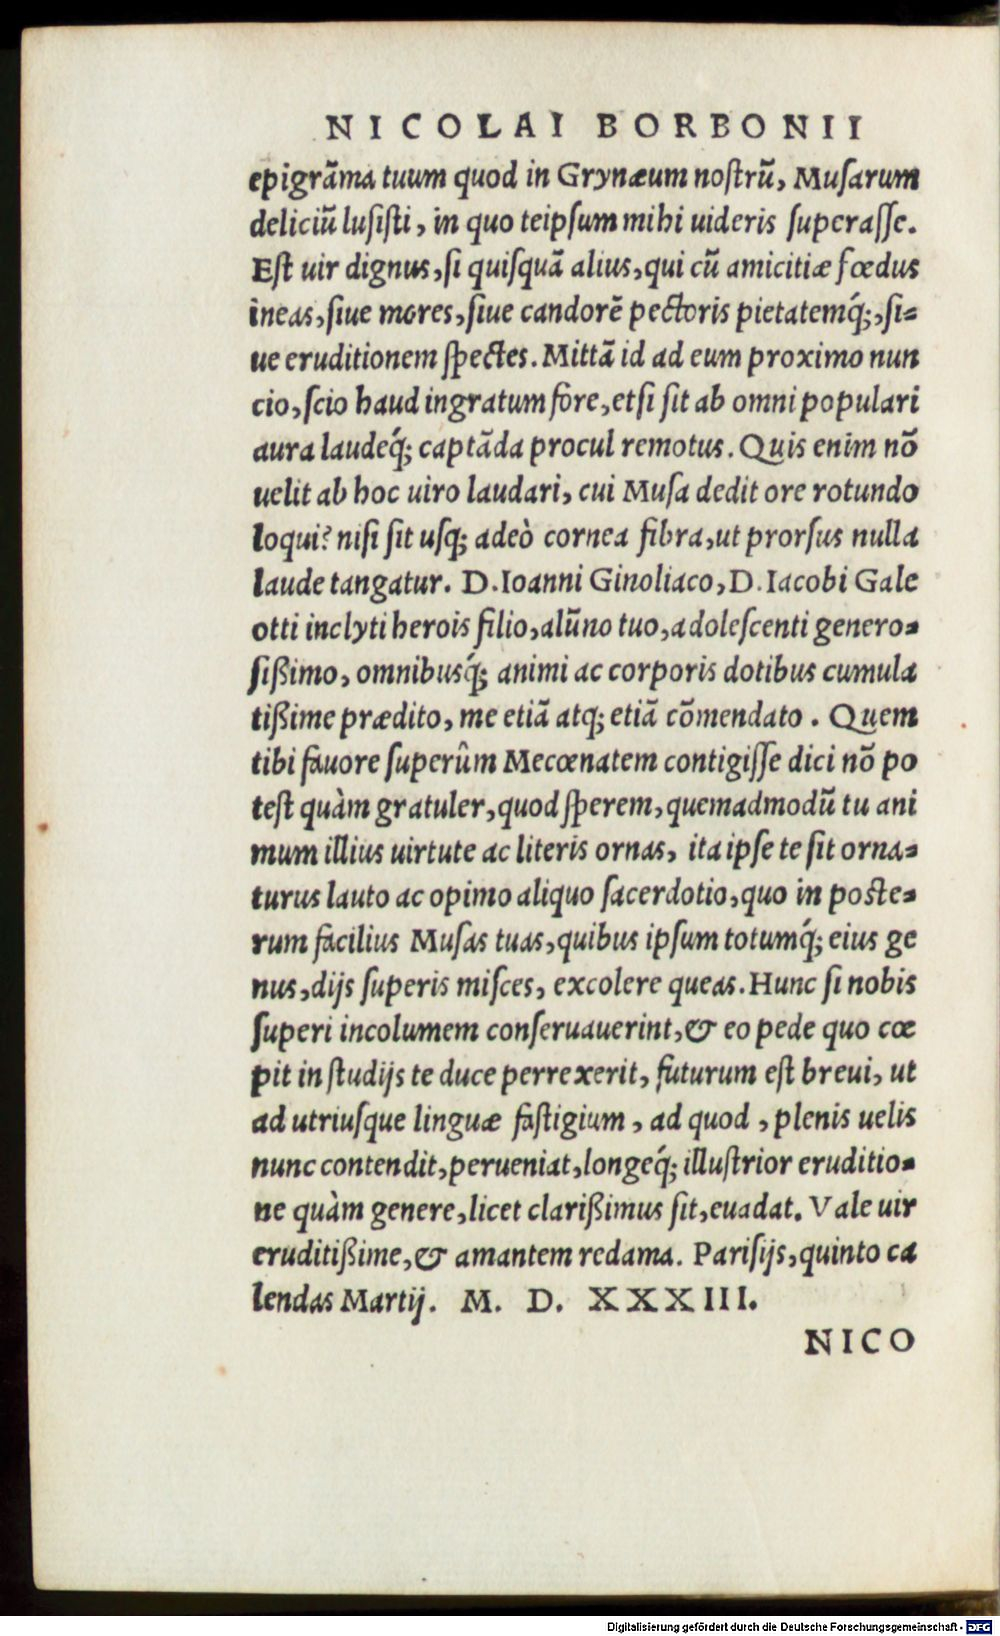 NICOLAI BORBONII
epigrãma tuum quod in Grynæum nostrũ, Musarum
deliciũ lusisti, in quo teipsum mihi uideris superasse.
Est uir dignus, si quisquã alius, qui cũ amicitiæ fœdus
ineas, siue mores, siue candorẽ pectoris pietatemq́;, si-
ue eruditionem spectes. Mittã id ad eum proximo nun
cio, scio haud ingratum fore, etsi sit ab omni populari
aura laudeq́; captãda procul remotus. Quis enim nõ
uelit ab hoc uiro laudari, cui Musa dedit ore rotundo
loqui? nisi sit usq; adeò cornea fibra, ut prorsus nulla
laude tangatur. D. Ioanni Ginoliaco, D. Iacobi Gale
otti inclyti herois filio, alũno tuo, adolescenti genero-
sißimo, omnibusq́; animi ac corporis dotibus cumula
tißime prædito, me etiã atq; etiã cõmendato. Quem
tibi fauore superûm Mecœnatem contigisse dici nõ po
test quàm gratuler, quod sperem, quemadmodũ tu ani
mum illius uirtute ac literis ornas, ita ipse te sit orna-
turus lauto ac opimo aliquo sacerdotio, quo in poste-
rum facilius Musas tuas, quibus ipsum totumq́; eius ge
nus, dijs superis misces, excolere queas. Hunc si nobis
superi incolumem conseruauerint, & eo pede quo cœ
pit in studijs te duce perrexerit, futurum est breui, ut
ad utriusque linguæ fastigium, ad quod, plenis uelis
nunc contendit, perueniat, longeq́; illustrior eruditio-
ne quàm genere, licet clarißimus sit, euadat. Vale uir
eruditißime, & amantem redama. Parisijs, quinto ca
lendas Martij. M. D. XXXIII.
NICO
Digitalisierung gefördert durch die Deutsche Forschungsgemeinschaft - DFG